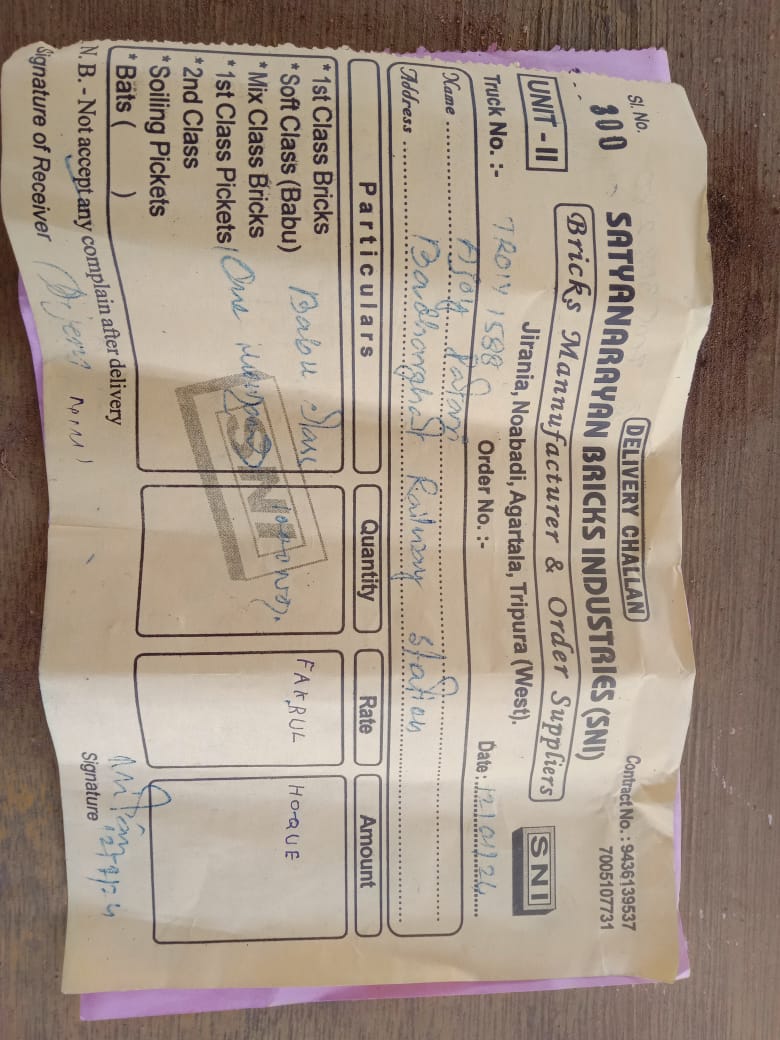 DELIVERY CHALLAN
Sl. No. 300
Contract No. : 9436139537
7005107731
SATYANARAYAN BRICKS INDUSTRIES (SNI)
Bricks Mannufacturer & Order Suppliers
UNIT - II
Jirania, Noabadi, Agartala, Tripura (West).
SNI
Truck No. :- TR01Y 1588 Order No. :- Date :
Name
Address Badharghat Railway Station
Particulars Quantity Rate Amount
* 1st Class Bricks
* Soft Class (Babu) Babu Class FAKRUL HOQUE
* Mix Class Bricks
* 1st Class Pickets One
* 2nd Class
* Soiling Pickets
* Bats ( )
SNI
N. B. - Not accept any complain after delivery
Signature of Receiver Signature